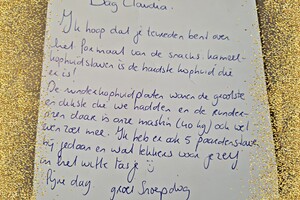 Dag Claudia.
Ik hoop dat je tevreden bent over
het formaat van de snacks. kameel-
kophuidslaven is de hardste kophuid die
er is!
De runderkophuidplaten waren de grootste
en dikste die we hadden en de runder-
oren daar is onze maatin (40 kg) ook wel
even zoet mee. Ik heb er ook 5 paardenstaven
bij gedaan en wat lekkers voor jezelf
in het witte tasje :)
Fijne dag groet Snoepdog